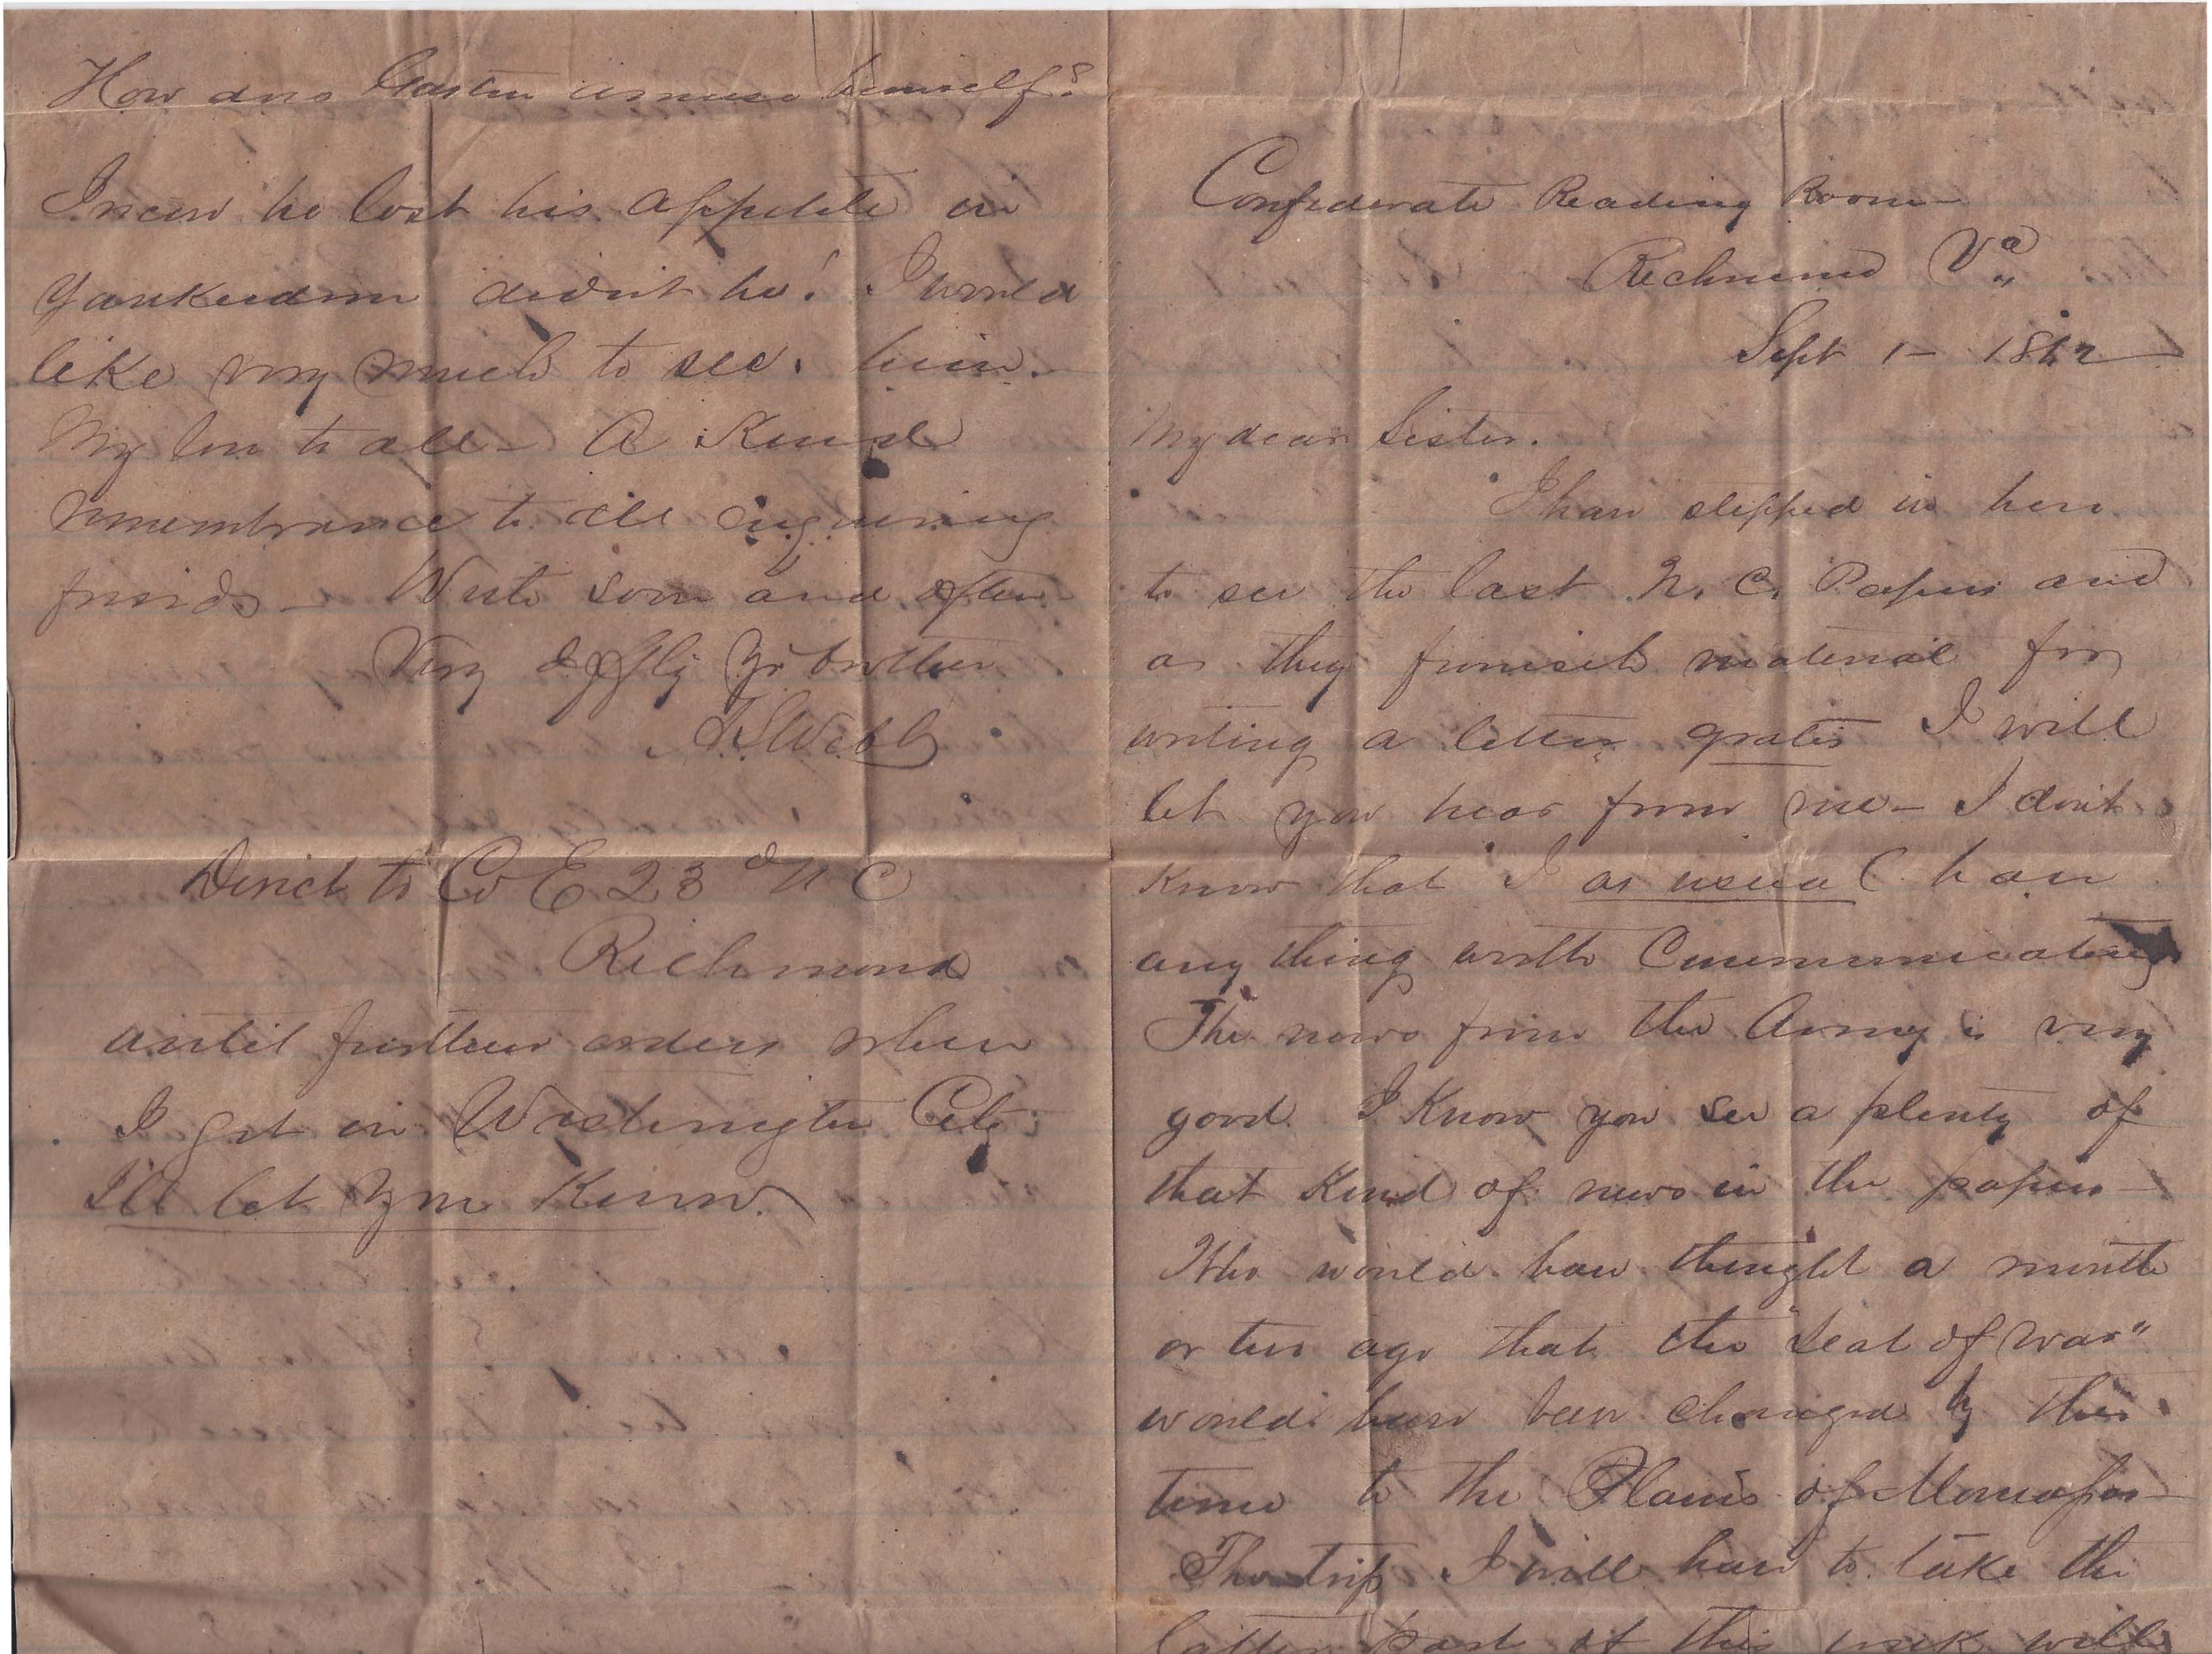 Confederate Reading Room
Richmond Va
Sept 1 - 1862
My dear Sister.
I have slipped in here
to see the last N. C. Papers and
as they furnish material for
writing a letter gratis I will
let you hear from me - I don't
know that I as usual have
any thing worth Communicating
The news from the Army is very
good. I Know you see a plenty of
that Kind of news in the papers -
Who would have thought a month
or two ago that the "Seat of War"
would have been changed by this
time to the Plains of Manassas -
The trip I will have to take the
latter part of this week will
How does Gaston amuse himself?
I know he lost his appetite in
Yankeedom didn't he! I would
like very much to see him.
My love to all - A Kind
remembrance to all enquiring
friends - Write soon and often
Very affly Yr brother
Webb
Direct to Co E 23d N C
Richmond
until further orders when
I get in Washington City
I'll let You Know.